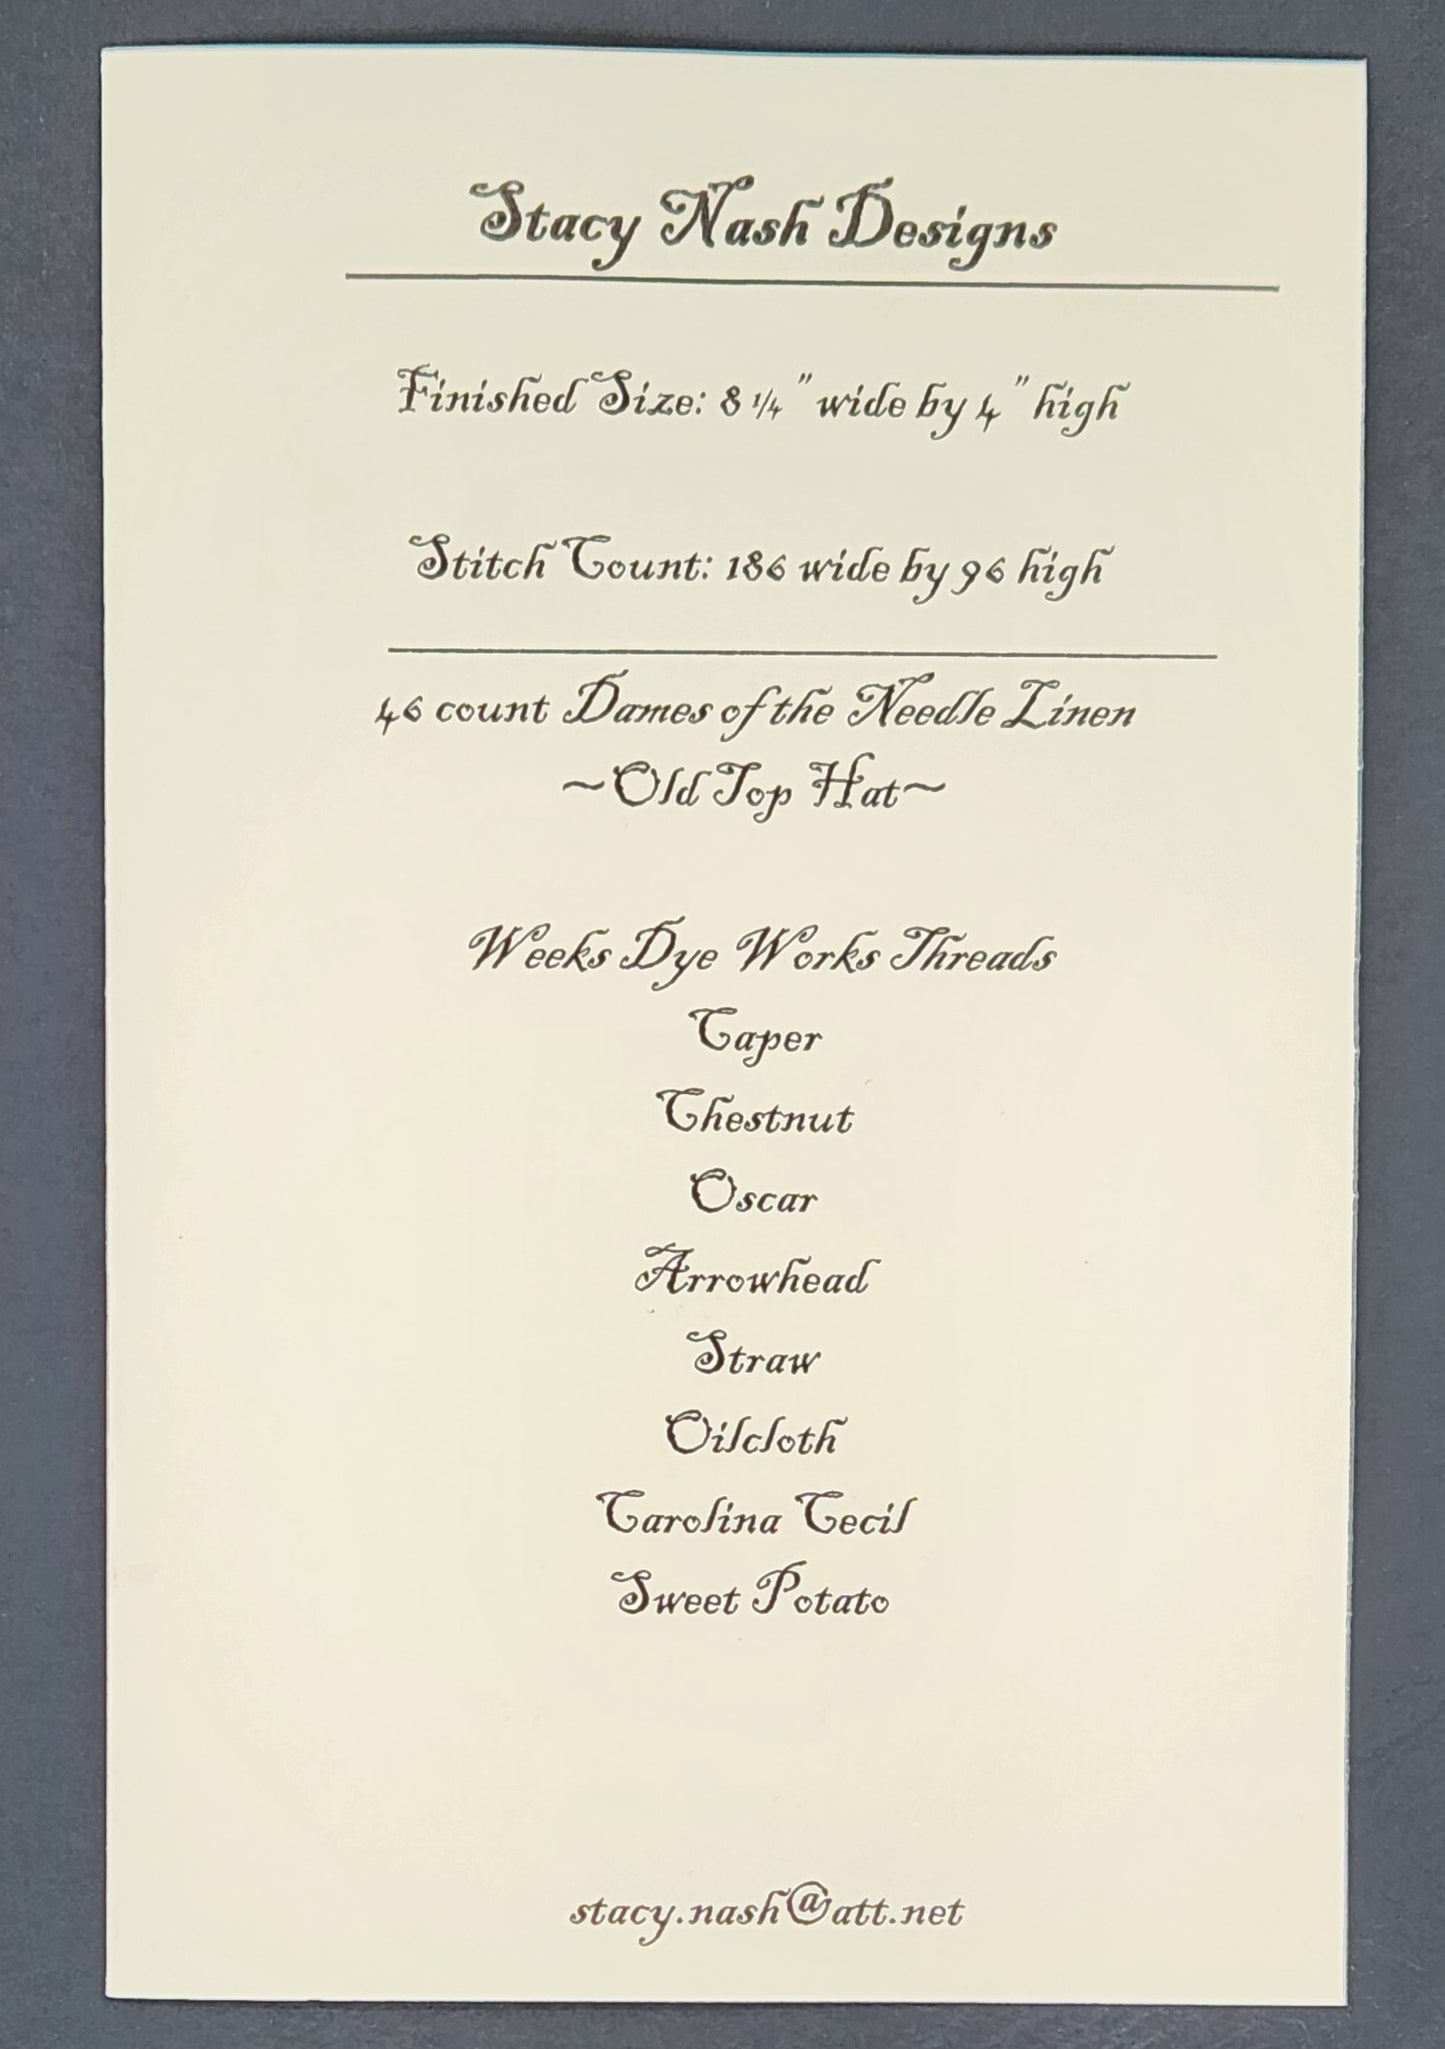 Stacy Nash Designs
Finished Size: 8 1/4" wide by 4" high
Stitch Count: 186 wide by 96 high
46 count Dames of the Needle Linen
~Old Top Hat~
Weeks Dye Works Threads
Caper
Chestnut
Oscar
Arrowhead
Straw
Oilcloth
Carolina Cecil
Sweet Potato
stacy.nash@att.net